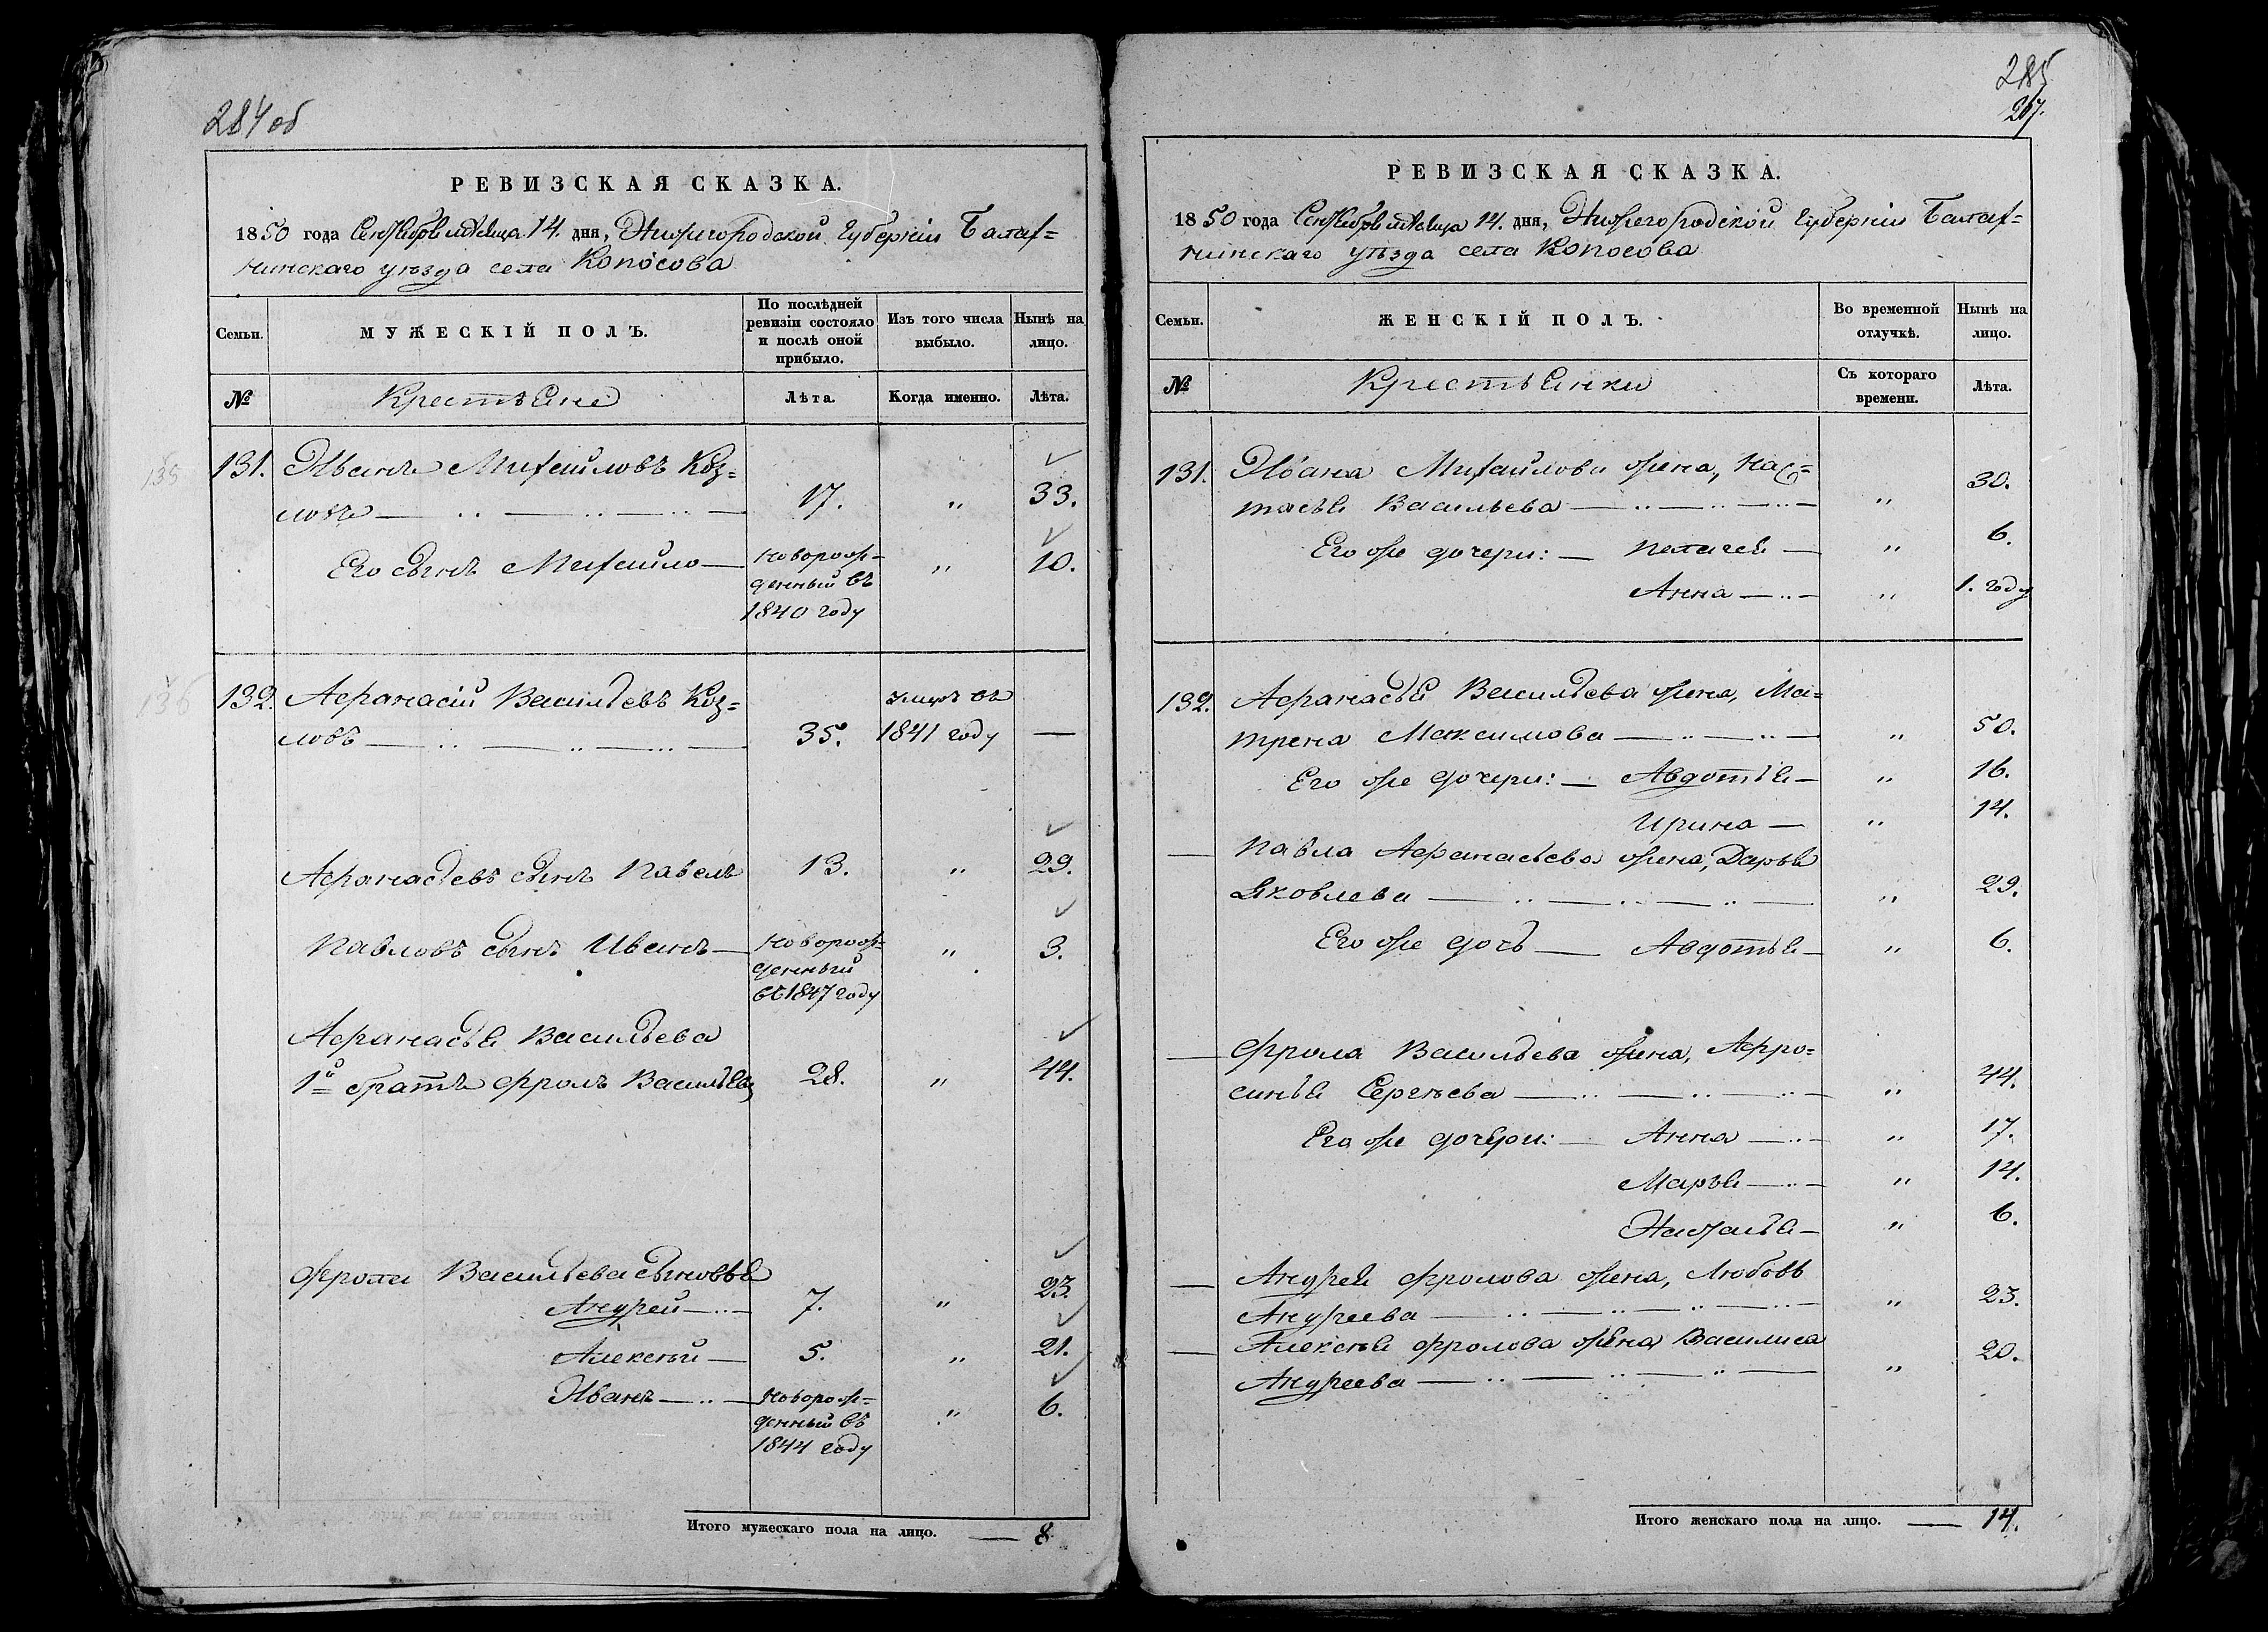 284 об
РЕВИЗСКАЯ СКАЗКА.
1850 года Сентября месяца 14. дня, Нижегородской Губерніи Балах=
нинскаго уѣзда села Копосова
Семьи.
МУЖЕСКІЙ ПОЛЪ.
По послѣдней ревизіи состояло и послѣ оной прибыло.
Изъ того числа выбыло.
Нынѣ на лицо.
№
Крестьяне
Лѣта.
Когда именно.
Лѣта.
131. Иванъ Михайловъ Коз=
ловъ — 17. „ 33.
Его сынъ Михайло — новорож=
денный въ
1840 году „ 10.
132. Афанасій Васильевъ Коз=
ловъ — 35. умеръ въ
1841 году —
Афанасьевъ сынъ Павелъ 13. „ 29.
Павловъ сынъ Иванъ — новорож=
денный
въ 1847 году „ 3.
Афанасья Васильева
1й братъ Фролъ Васильевъ 28. „ 44.
Фрола Васильева сыновья
Андрей — 7. „ 23.
Алексѣй — 5. „ 21.
Иванъ — новорож=
денный въ
1844 году „ 6.
Итого мужескаго пола на лицо. — 8
285
267.
РЕВИЗСКАЯ СКАЗКА.
1850 года Сентября месяца 14. дня, Нижегородской Губерніи Балах=
нинскаго уѣзда села Копосова
Семьи.
ЖЕНСКІЙ ПОЛЪ.
Во временной отлучкѣ.
Нынѣ на лицо.
№
Крестьянки
Съ котораго времени.
Лѣта.
131. Ивана Михайлова жена, Нас=
тасья Васильева — „ 30.
Его же дочери: — Пелагея — „ 6.
Анна — „ 1. году
132. Афанасья Васильева жена, Ма=
трена Максимова — „ 50.
Его же дочери: — Авдотья — „ 16.
Ирина — „ 14.
— Павла Афанасьева жена, Дарья
Яковлева — „ 29.
Его же дочь — Авдотья — „ 6.
— Фрола Васильева жена, Афро=
синья Сергѣева — „ 44.
Его же дочери: — Анна — „ 17.
Марья — „ 14.
Наталья — „ 6.
— Андрея Фролова жена, Любовь
Андреева — „ 23.
— Алексѣя Фролова жена Василиса
Андреева — „ 20.
Итого женскаго пола на лицо. — 14.